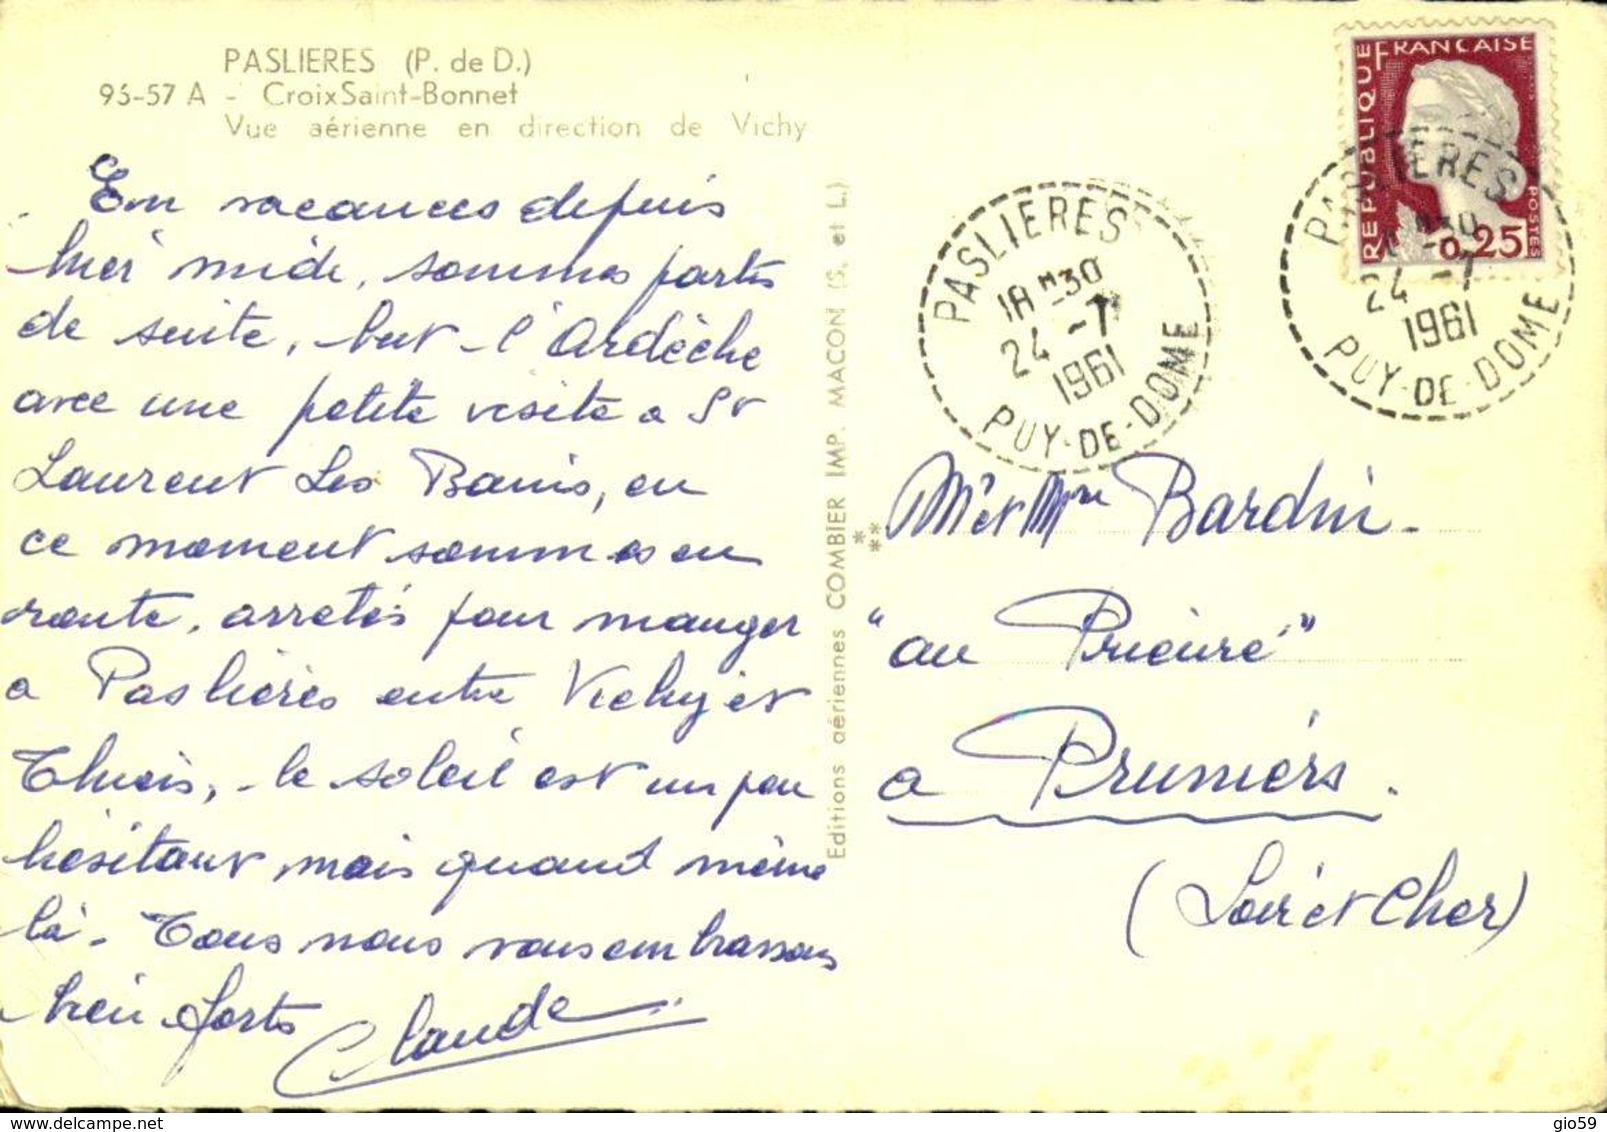 PASLIERES (P. de D.)
96-57 A - Croix Saint-Bonnet
Vue aérienne en direction de Vichy
En vacances depuis
hier midi, sommes partis
de suite, but l'Ardèche
avec une petite visite a St
Laurent Les Bains, en
ce moment sommes en
route, arretés pour manger
a Paslières entre Vichy et
Thiers, le soleil est un peu
hésitant mais quand même
là. Tous nous vous embrassons
bien forts Claude
Editions aériennes COMBIER IMP. MACON (S. et L.)
REPUBLIQUE FRANCAISE
POSTES
0,25
PASLIERES
18 H30
24 -7
1961
PUY-DE-DOME
PASLIERES
H30
24 -7
1961
PUY-DE-DOME
Mr et Mme Bardin.
"au Prieuré"
a Pruniers.
(Loir et Cher)
delcampe.net
gio59